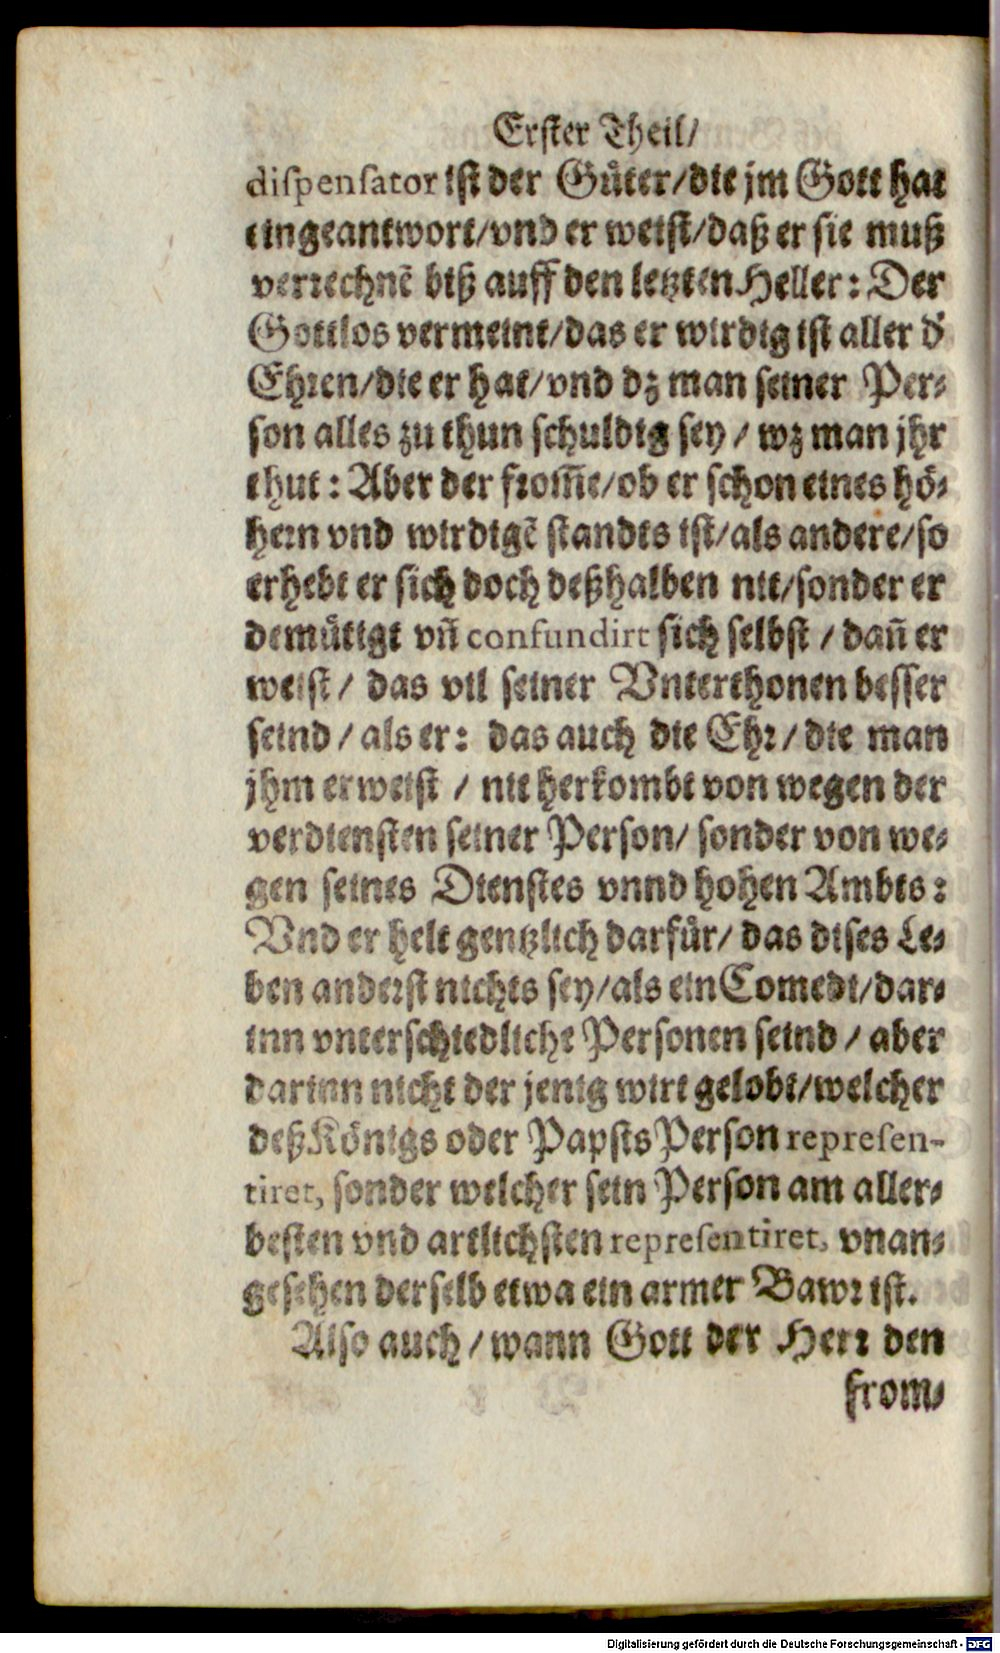 Erster Theil/
dispensator ist der Gůter/die jm Gott hat
eingeantwort/vnd er weist/daß er sie muß
verrechnẽ biß auff den letzten Heller: Der
Gottlos vermeint/das er wirdig ist aller d'
Ehren/die er hat/vnd dz man seiner Per-
son alles zu thun schuldig sey / wz man jhr
thut: Aber der from̃e/ob er schon eines hö-
hern vnd wirdigẽ standts ist/als andere/so
erhebt er sich doch deßhalben nit/sonder er
demůtigt vñ confundirt sich selbst / dañ er
weist / das vil seiner Vnterthonen besser
seind / als er: das auch die Ehr / die man
jhm erweist / nit herkombt von wegen der
verdiensten seiner Person/ sonder von we-
gen seines Dienstes vnnd hohen Ambts:
Vnd er helt gentzlich darfůr/ das dises Le-
ben anderst nichts sey/als ein Comedi/dar-
inn vnterschiedliche Personen seind / aber
darinn nicht der jenig wirt gelobt/welcher
deß Königs oder Papsts Person represen-
tiret, sonder welcher sein Person am aller-
besten vnd artlichsten representiret, vnan-
gesehen derselb etwa ein armer Bawr ist.
Also auch / wann Gott der Herr den
from-
Digitalisierung gefördert durch die Deutsche Forschungsgemeinschaft - DFG